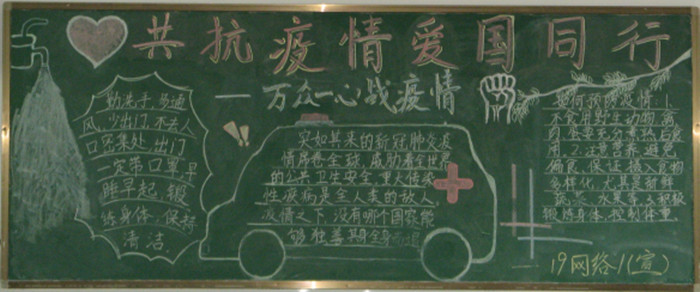 共抗疫情爱国同行
一万众一心战疫情
勤洗手,多通
风,少出门,不去人
口密集处,出门
一定带口罩,早
睡早起,锻
炼身体,保持
清洁.
突如其来的新冠肺炎疫
情席卷全球,威胁着全世界
的公共卫生安全,重大传染
性疾病是全人类的敌人,
疫情之下,没有哪个国家能
够独善其身全身而退
如何预防疫情
不食用野生动物,禽
肉、蛋要充分煮熟后食
用.2.注意营养,避免
偏食,保证摄入食物
多样化,尤其是新鲜
蔬菜、水果等.3.积极
锻炼身体,控制体重.
19网络1(宣)